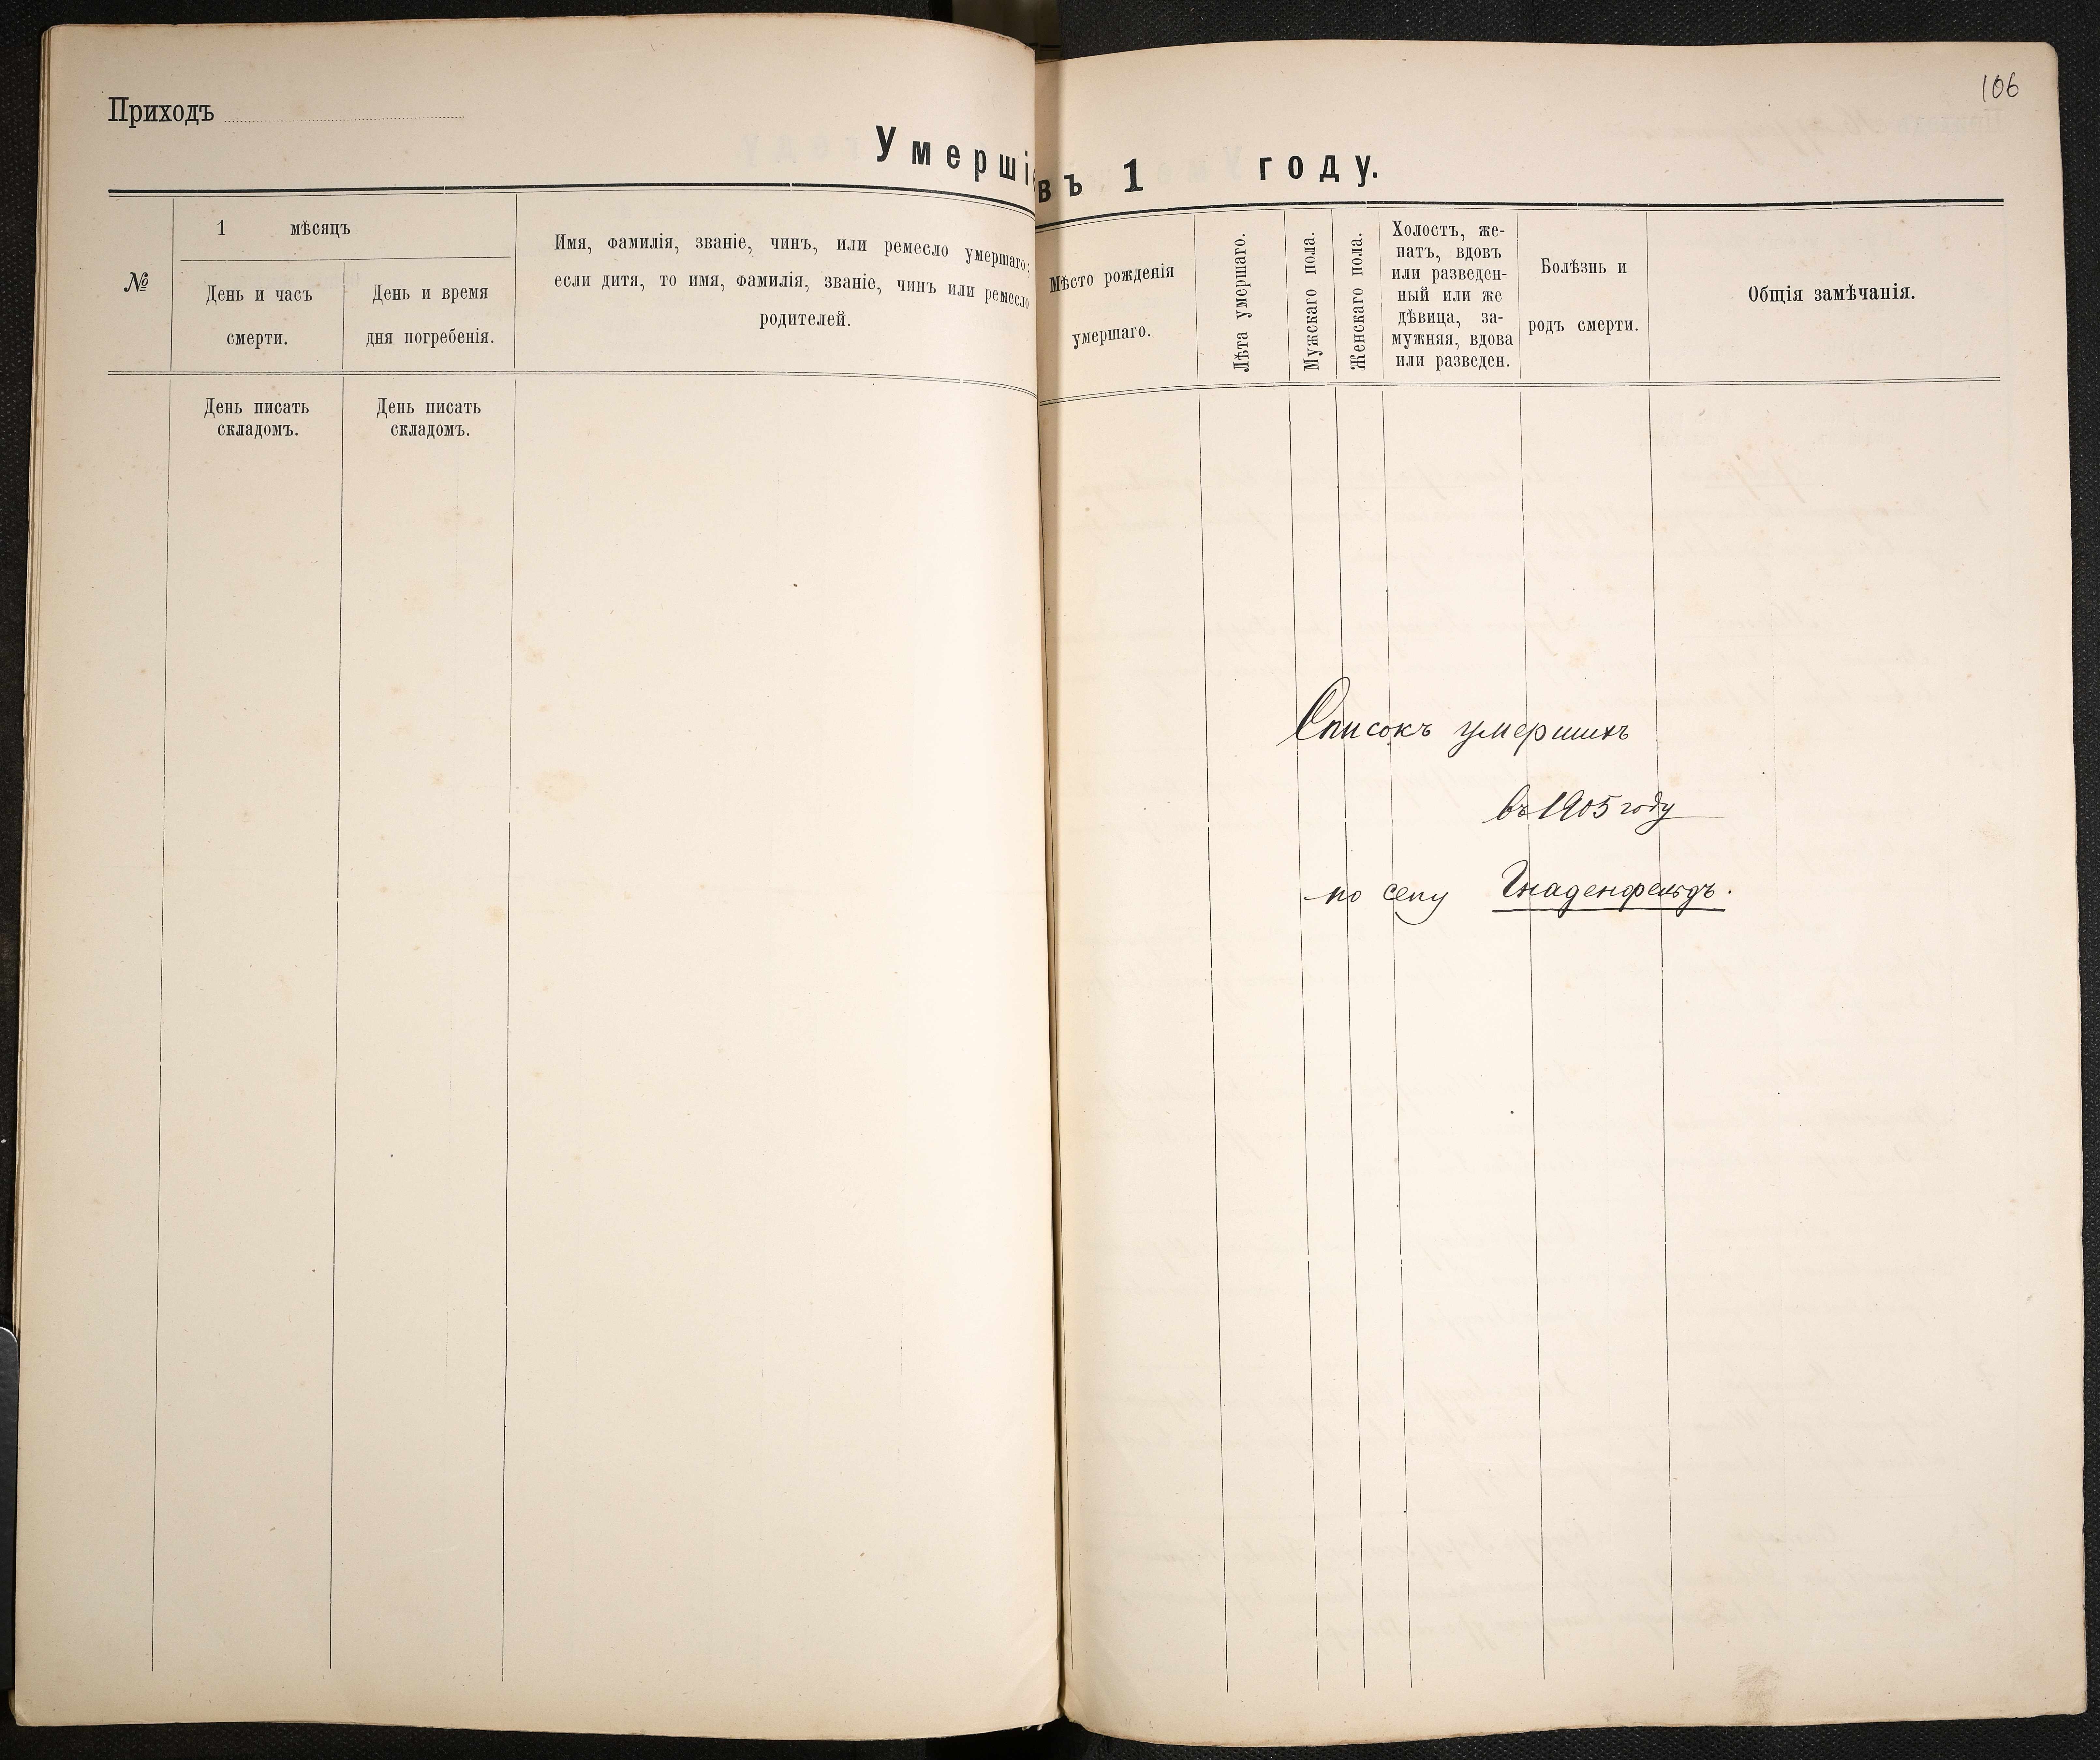 Приходъ
106
Умершіе
въ 1 году.
№
1 мѣсяцъ
День и часъ
смерти.
День и время
дня погребенія.
Имя, фамилія, званіе, чинъ, или ремесло умершаго;
если дитя, то имя, фамилія, званіе, чинъ или ремесло
родителей.
Мѣсто рожденія
умершаго.
Лѣта умершаго.
Мужскаго пола.
Женскаго пола.
Холостъ, же-
натъ, вдовъ
или разведен-
ный или же
дѣвица, за-
мужняя, вдова
или разведен.
Болѣзнь и
родъ смерти.
Общія замѣчанія.
День писать
складомъ.
День писать
складомъ.
Списокъ умершихъ
въ 1905 году
по селу Гнаденфельдъ.